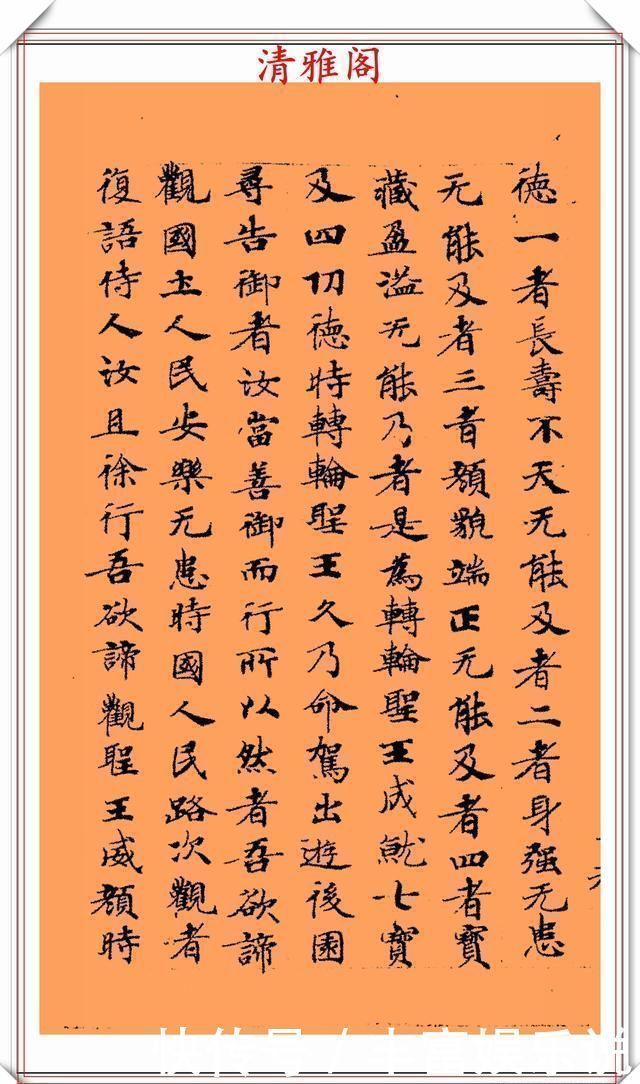 清雅阁
德一者長壽不夭无能及者二者身强无患
无能及者三者顔貌端正无能及者四者寳
藏盈溢无能乃者是為轉輪聖王成就七寳
及四切德時轉輪聖王久乃命駕出遊後園
尋告御者汝當善御而行所以然者吾欲諦
觀國土人民安樂无患時國人民路次觀者
復語侍人汝且徐行吾欲諦觀聖王威顔時